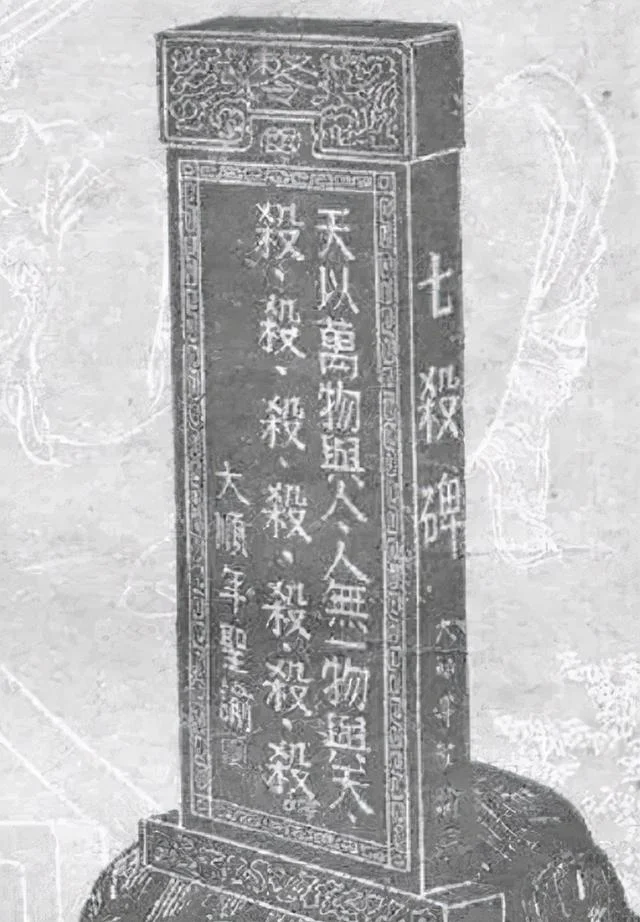 天以萬物與人、人無一物與天、
殺、殺、殺、殺、殺、殺、殺
大順年聖諭
七殺碑